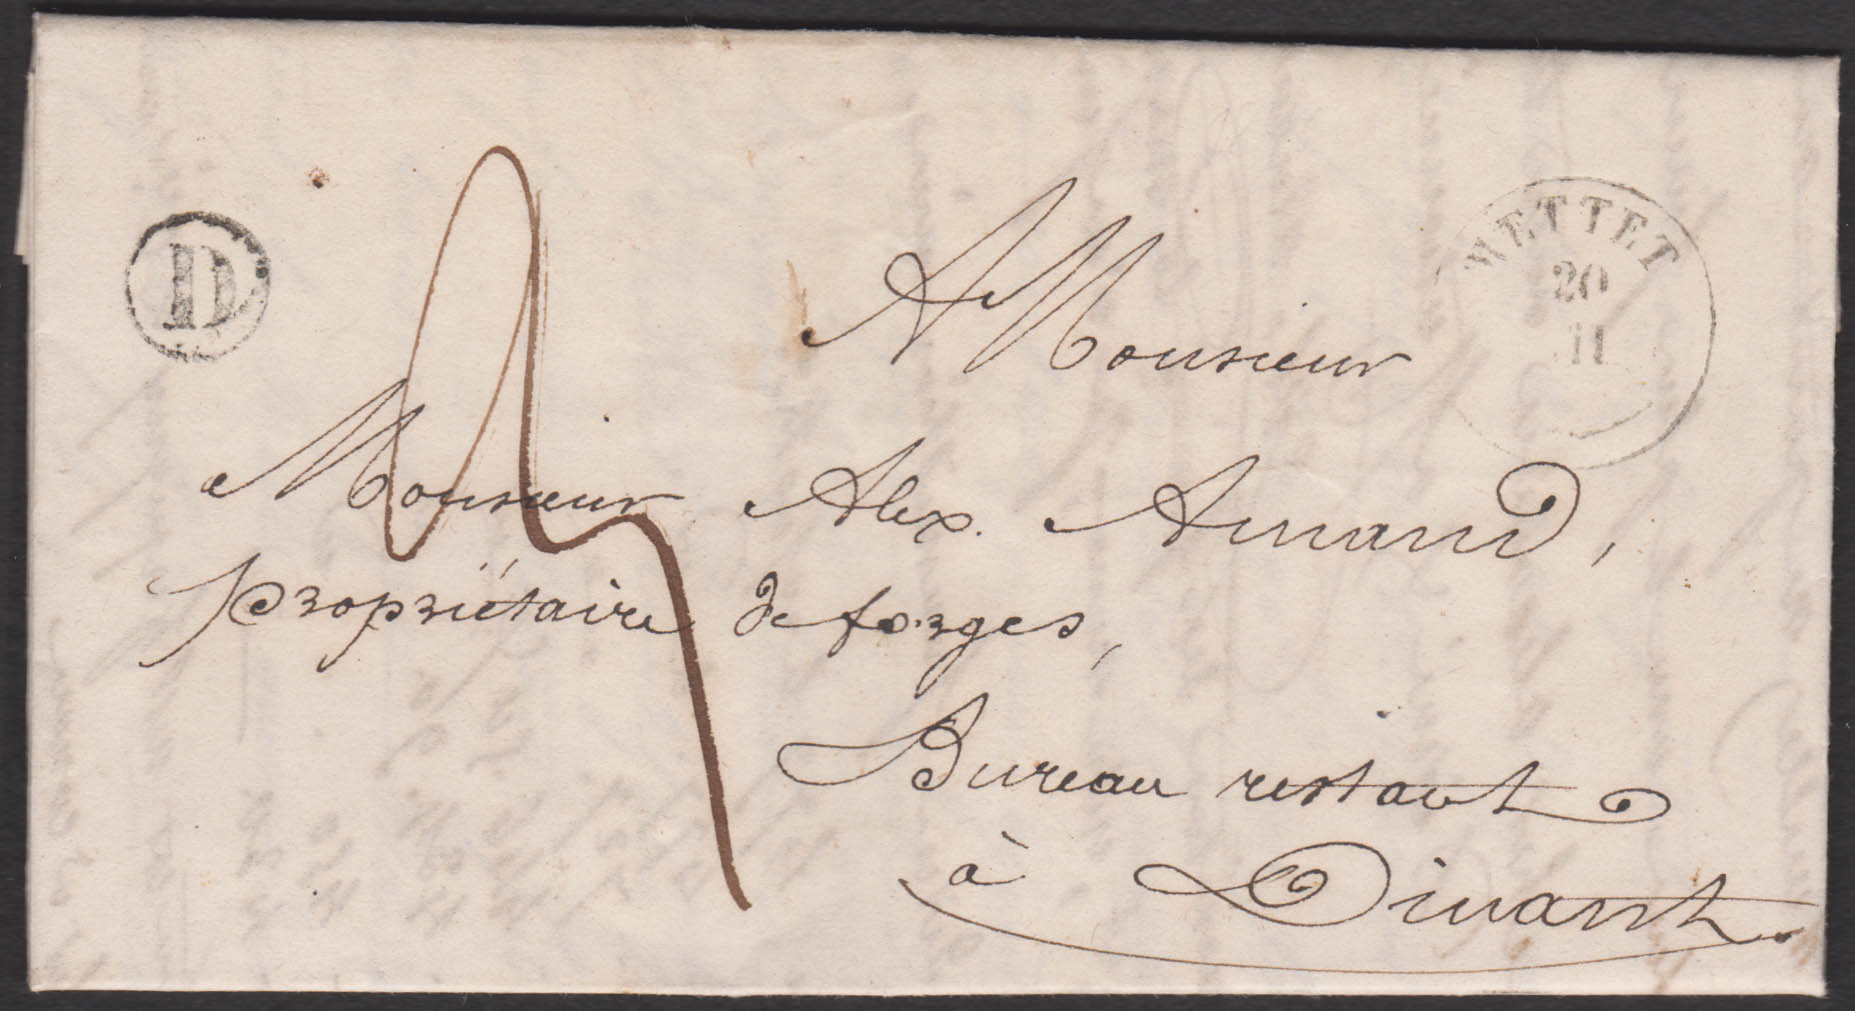 D
WETTET
20
11
A Monsieur
Monsieur Alex. Amand,
propriétaire de forges,
Bureau restant
à Dinant.